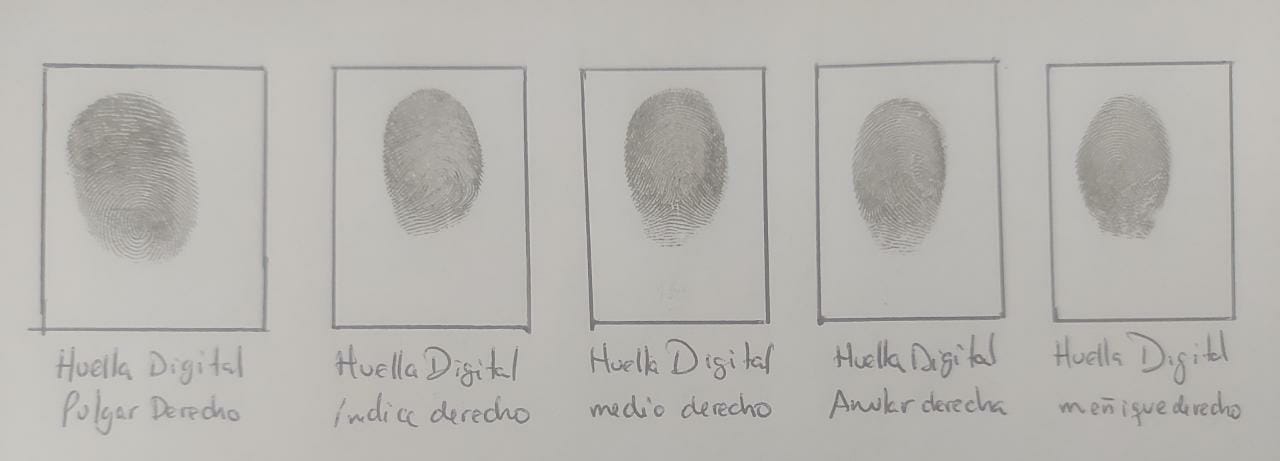 Huella Digital
Pulgar Derecho
Huella Digital
índice derecho
Huella Digital
medio derecho
Huella Digital
Anular derecha
Huella Digital
meñique derecho